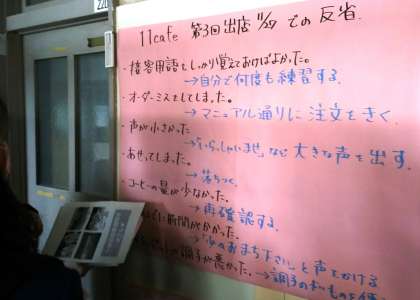 11cafe 第3回出店 11/27 での反省
・接客用語をしっかり覚えておけばよかった。
→自分で何度も練習する。
・オーダーミスをしてしまった。
→マニュアル通りに注文をきく。
・声が小さかった
→「いらっしゃいませ」など大きな声を出す。
・あせってしまった。
→落ちつく。
・コーヒーの量が少なかった。
→再確認する。
時間がかかった。
→「少々おまち下さい」と声をかける
の調子が悪かった。→調子の